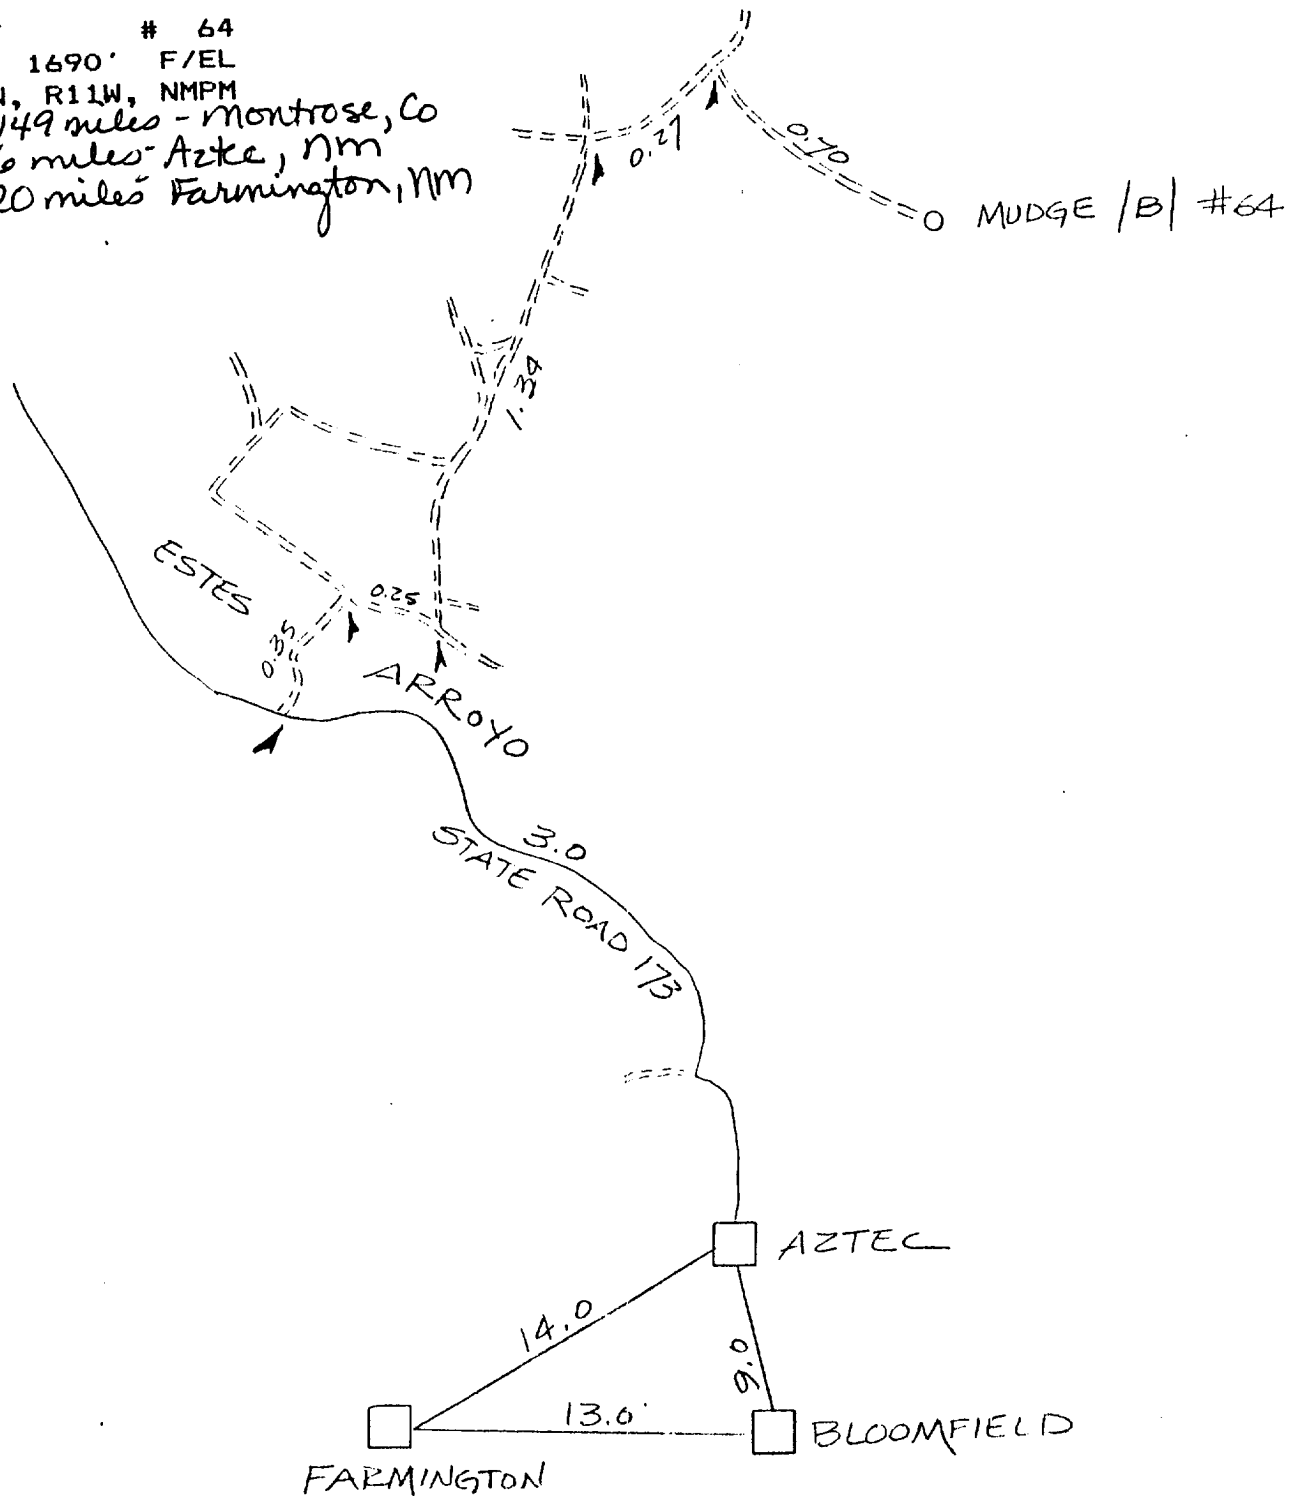 # 64
1690' F/EL
R11W, NMPM
149 miles - Montrose, Co
6 miles - Aztec, NM
20 miles Farmington, NM
0.27
0.70
MUDGE /B/ #64
1.34
ESTES
0.25
0.35
ARROYO
3.0
STATE ROAD 173
AZTEC
14.0
9.0
13.0
BLOOMFIELD
FARMINGTON